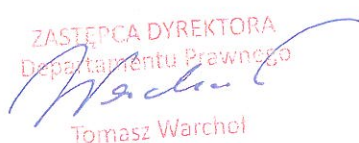 ZASTĘPCA DYREKTORA
Departamentu Prawnego
Warchoł
Tomasz Warchoł